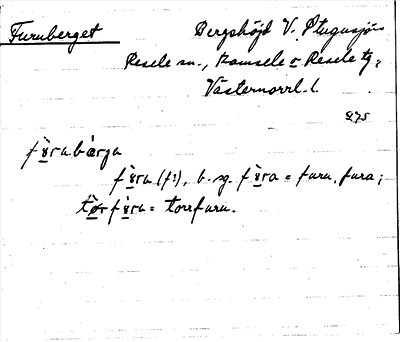 Furuberget
Bergshöjd V. Stugusjön
Resele sn., Ramsele o Resele tg,
Västernorrl. l.
275
fùrubærga
fùru (f?), b. sg. fùra = furu, fura;
tø̀rfùru = torrfuru.